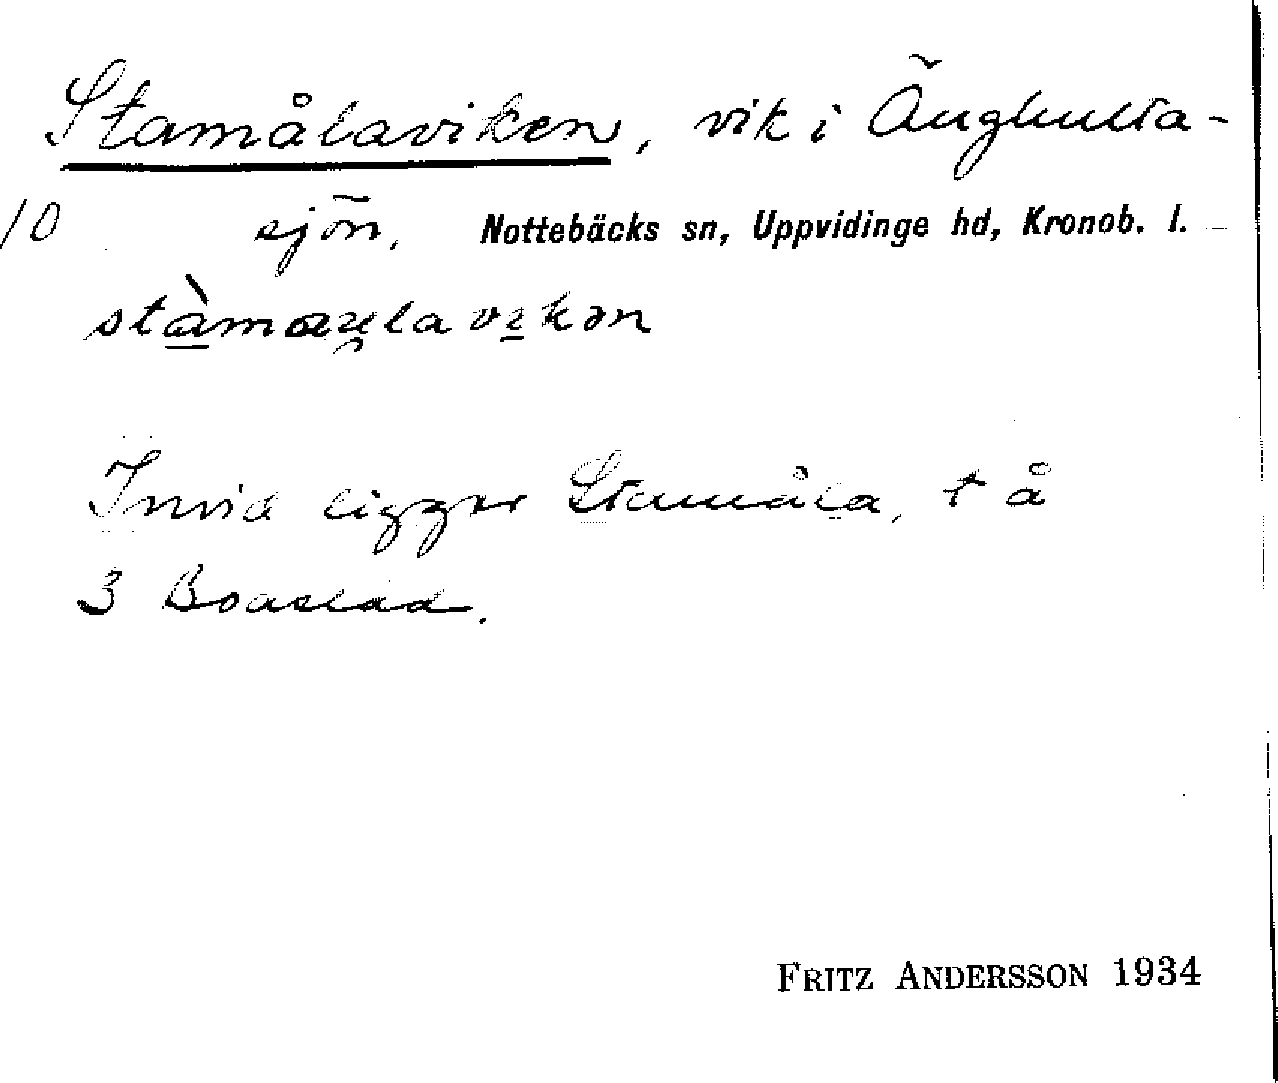 Stamålaviken, vik i Änghulta-
10 sjön, Nottebäcks sn, Uppvidinge hd, Kronob. l.
stàmaulavikən
Invid ligger Stamåla, t å
3 Boastad.
FRITZ ANDERSSON 1934